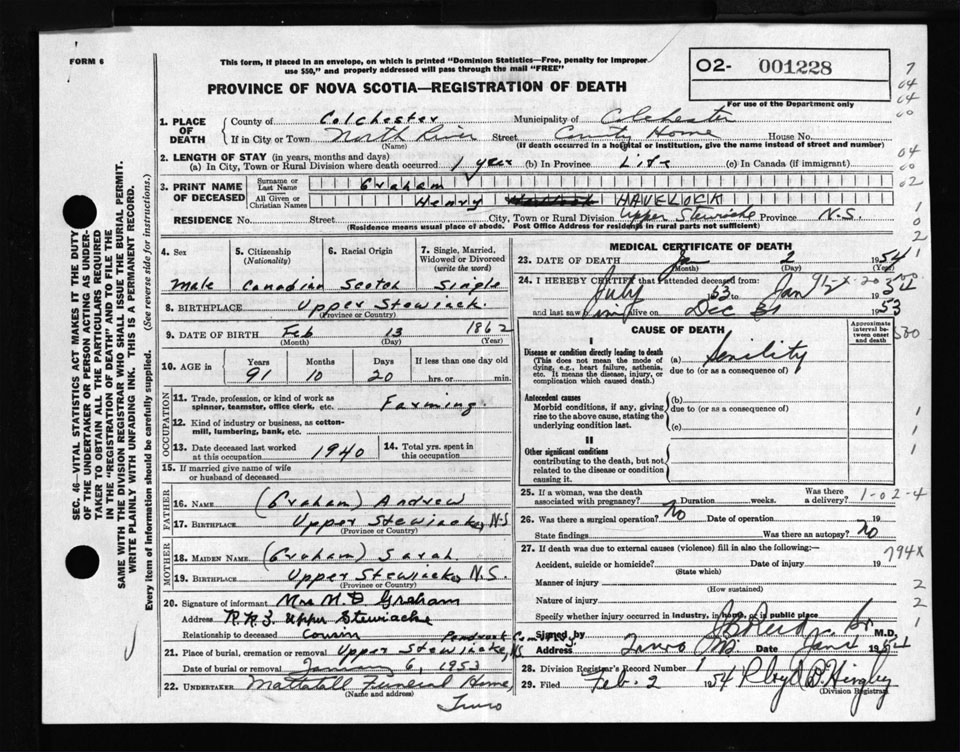 FORM 6
This form, if placed in an envelope, on which is printed "Dominion Statistics—Free, penalty for improper
use $50," and properly addressed will pass through the mail "FREE"
O2- 001228
PROVINCE OF NOVA SCOTIA—REGISTRATION OF DEATH
For use of the Department only
7
04
04
00
04
00
02
1
0
2
1. PLACE OF DEATH
County of Colchester Municipality of Colchester
If in City or Town North River Street County Home House No.
(Name) (If death occurred in a hospital or institution, give the name instead of street and number)
2. LENGTH OF STAY (in years, months and days)
(a) In City, Town or Rural Division where death occurred 1 year (b) In Province Life (c) In Canada (if immigrant)
3. PRINT NAME OF DECEASED
Surname or Last Name Graham
All Given or Christian Names Henry HAVELOCK
RESIDENCE No. Street City, Town or Rural Division Upper Stewiacke Province N.S.
(Residence means usual place of abode. Post Office Address for residents in rural parts not sufficient)
4. Sex Male
5. Citizenship (Nationality) Canadian
6. Racial Origin Scotch
7. Single, Married, Widowed or Divorced (write the word) Single
8. BIRTHPLACE Upper Stewiack.
(Province or Country)
9. DATE OF BIRTH Feb 13 1862
(Month) (Day) (Year)
10. AGE in Years Months Days If less than one day old
91 10 20 hrs. or min.
OCCUPATION
11. Trade, profession, or kind of work as
spinner, teamster, office clerk, etc. Farming
12. Kind of industry or business, as cotton-
mill, lumbering, bank, etc.
13. Date deceased last worked
at this occupation 1940
14. Total yrs. spent
in this occupation
15. If married give name of wife
or husband of deceased
FATHER
16. NAME (Graham) Andrew
17. BIRTHPLACE Upper Stewiacke, N-S
(Province or Country)
MOTHER
18. MAIDEN NAME (Graham) Sarah
19. BIRTHPLACE Upper Stewiacke N.S.
(Province or Country)
20. Signature of informant Mrs M D Graham
Address R.R.3 Upper Stewiacke
Relationship to deceased Cousin
21. Place of burial, cremation or removal Upper Stewiacke, N.S.
Date of burial or removal January 6, 1953
22. UNDERTAKER Mattatall Funeral Home
(Name and address)
Truro
MEDICAL CERTIFICATE OF DEATH
23. DATE OF DEATH Jan 2 1954
(Month) (Day) (Year)
24. I HEREBY CERTIFY that I attended deceased from
July 1953 to Jan
and last saw him alive on Dec 31 1953
CAUSE OF DEATH
Approximate interval between onset and death
I
Disease or condition directly leading to death
(This does not mean the mode of
dying, e.g., heart failure, asthenia,
etc. It means the disease, injury, or
complication which caused death.)
(a) Senility
due to (or as a consequence of)
Antecedent causes
Morbid conditions, if any, giving
rise to the above cause, stating the
underlying condition last.
(b)
due to (or as a consequence of)
(c)
II
Other significant conditions
contributing to the death, but not
related to the disease or condition
causing it.
500
1
1
1
25. If a woman, was the death
associated with pregnancy? Duration weeks. Was there a delivery?
1-02-4
26. Was there a surgical operation? No Date of operation 19
State findings Was there an autopsy? No
27. If death was due to external causes (violence) fill in also the following:—
794X
Accident, suicide or homicide? Date of injury 19
(State which)
Manner of injury
2
(How sustained)
Nature of injury
2
Specify whether injury occurred in industry, in home, or in public place
1
Signed by M.D.
Address Truro NS Date Jan 4 1954
28. Division Registrar's Record Number 1
29. Filed Feb. 2 1954
(Division Registrar)
SEC. 46—VITAL STATISTICS ACT MAKES IT THE DUTY
OF THE UNDERTAKER OR PERSON ACTING AS UNDER-
TAKER TO OBTAIN ALL THE PARTICULARS REQUIRED
IN THE "REGISTRATION OF DEATH" AND TO FILE THE
SAME WITH THE DIVISION REGISTRAR WHO SHALL ISSUE THE BURIAL PERMIT.
WRITE PLAINLY WITH UNFADING INK. THIS IS A PERMANENT RECORD.
Every item of information should be carefully supplied. (See reverse side for instructions.)